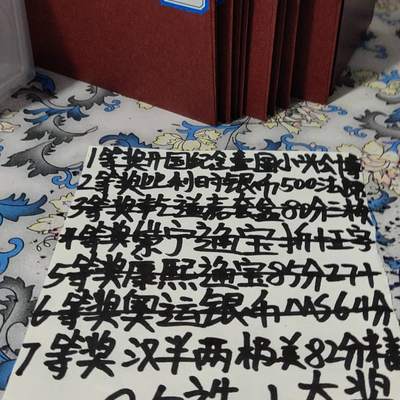 1等奖开国纪念壹圆小兴公博
2等奖比利时银币500法郎
3等奖乾道元套盒80分三枚
4等奖崇宁通宝折十王字
5等奖康熙通宝85分27+
6等奖奥运银币MS64分
7等奖汉半两极美82分精
大奖